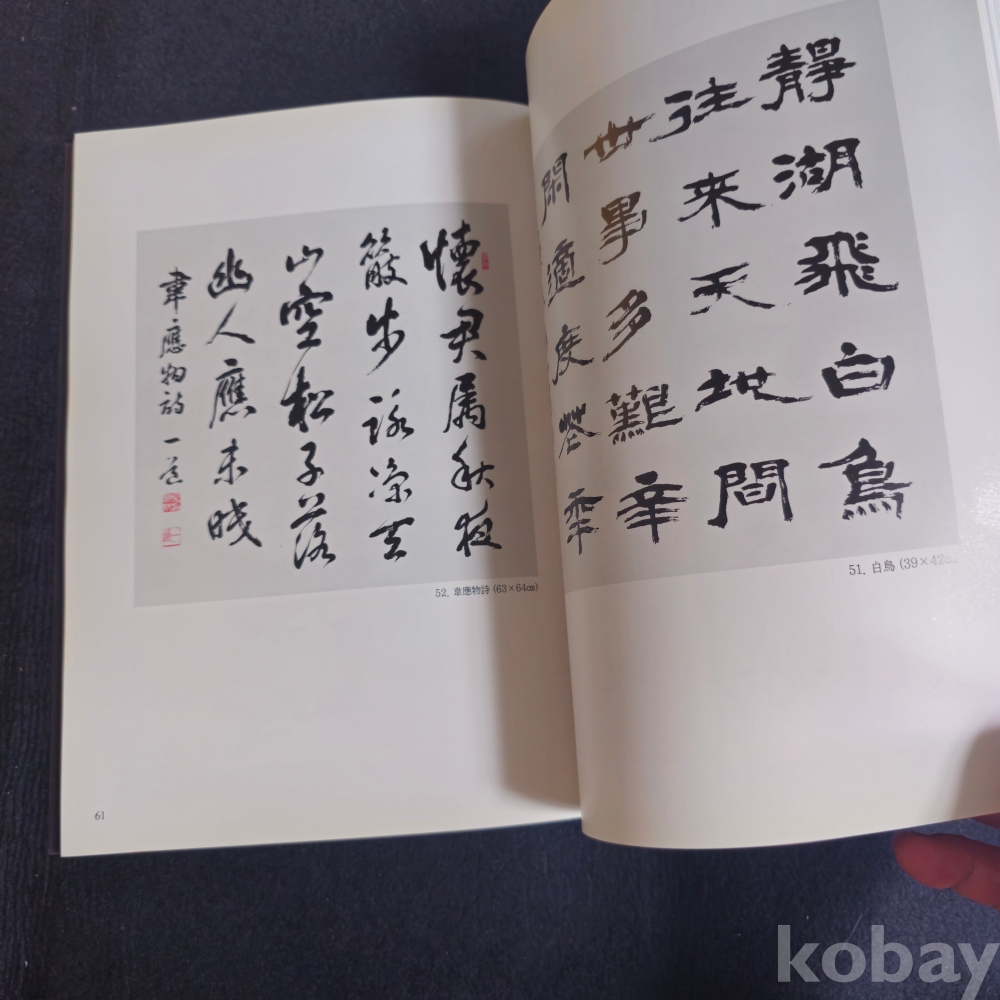 靜湖飛白鳥
往來天地間
世事多難辛
閑適度年
51. 白鳥 (39×42㎝
懷君属秋夜
散步詠凉天
山空松子落
幽人應未眠
韋應物詩 一
52. 韋應物詩 (63×64㎝)
61
kobay